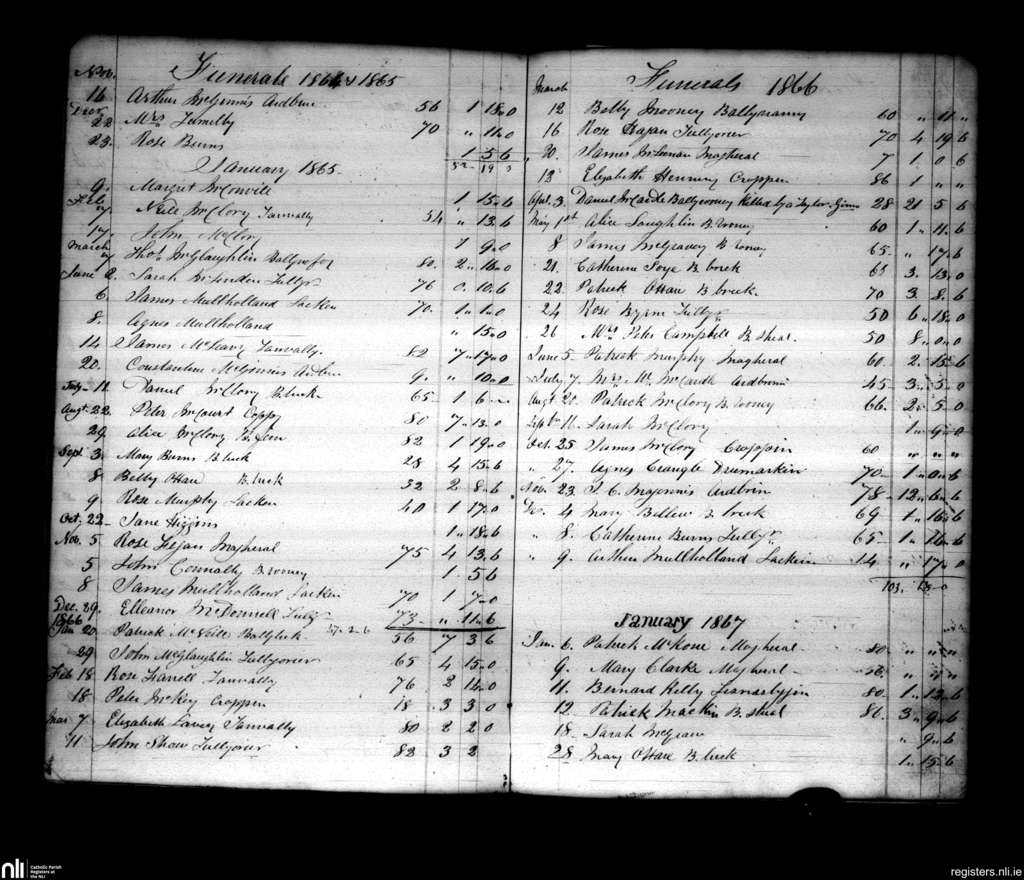 Nov. Funerals 1864 & 1865
16 Arthur McGinnis Ardbrin 56 1 15 0
Decr 22 Mrs 70 " 11 0
23 Rose Burns 1 5 6
January 1865 52 19
9 Margret McConvill 1 15 6
Feb. 7 Neile McClory Tanvally 54 " 13 6
17 John McClory 1 9 0
March 7 Thos. McGlaughlin 80 2 16 0
June 2 Sarah 76 0 10 6
6 James Mullholland Lacken 70 1 1 0
8 Agnes Mullholland " 15 0
14 James Tanvally 82 7 17 0
20 Constantine McGinnis 9 " 10 0
July 12 Daniel McClory B.luck 65 1 6
Augt. 22 Peter McCourt 80 7 13 0
29 Alice McClory 82 1 19 0
Sept. 3 Mary Burns B luck 28 4 15 6
8 Betty OHare B.luck 52 2 8 6
9 Rose Murphy Lacken 40 1 17 0
Oct. 22 Jane Higgins 1 18 6
Nov. 5 Rose Magheral 75 4 13 6
5 John Connally B rooney 1 5 6
8 James Mullholland Lacken 70 1 7 0
Dec. 29 Elleanor McDonnell 73 " 11 6
1866 Jan 20 Patrick 56 7 3 6
29 John McGlaughlin Tullyorier 65 4 15 0
Feb 18 Rose Farrell Tanvally 76 2 14 0
18 Peter McKey Croppen 18 3 3 0
Mar 7 Elizabeth Lavery Tanvally 80 2 2 0
11 John Shaw Tullyorier 82 3 2
March Funerals 1866
12 Betty Mooney 60 " 11 "
16 Rose Fagan Tullyorier 70 4 19 6
20 James Magheral 7 1 0 6
13 Elizabeth Henning Croppen 86 1 " "
Apri. 3 Daniel McCardle Ballyrooney Killed by a 28 21 5 6
May 1st Alice Loughlin B. rooney 60 1 11 6
8 James McGreavey B rooney 65 " 17 6
21 Catherine B brick 65 3 13 0
22 Patrick OHare B brick 70 3 8 6
24 Rose Byrne 50 6 18 0
26 Mrs Peter Campbell B. sheal 50 8 0 0
June 5 Patrick Murphy Magheral 60 2 15 6
July 7 McCardle Ardbrin 45 3 5 0
Augt 20 Patrick McClory B. rooney 66 2 5 0
Septr 16 Sarah McClory 1 9 0
Oct. 25 James McClory Croppin 60 " " "
" 27 Agnes Crangle Drumarkin 70 1 0 6
Nov. 23 Maginnis Ardbrin 78 12 6 6
4 Mary Bellew B brick 69 1 16 6
" 8 Catherine Burns 65 1 16 6
" 9 Arthur Mullholland Lacken 14 " 17 0
103 13 0
January 1867
Jan. 6 Patrick McKone Magheral 80 " " "
9 Mary Clarke Magheral 56 " " "
11 Bernard Kelly 80 1 13 6
12 Patrick Mackin B. sheal 86 3 9 6
18 Sarah McGraw " 9 6
28 Mary OHare B. luck 1 15 6
nli Catholic Parish
Registers at
the NLI
registers.nli.ie